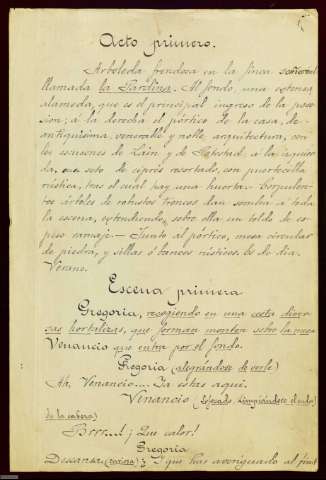 Acto primero.
Arboleda frondosa en la finca señorial
llamada la Pardina. Al fondo, una extensa
alameda, que es el principal ingreso de la pose-
sion; á la derecha el pórtico de la casa, de
antiquísima, venerable y noble arquitectura, con
los escusones de Laín y de Potestad; á la izquier-
da, seto de ciprés recortado, con puertecilla
rústica, tras el cual hay una huerta. Corpulen-
tos árboles de robustos troncos dan sombra á toda
la escena, extendiendo sobre ella un toldo de es-
peso ramaje. — Junto al pórtico, mesa circular
de piedra, y sillas ó bancos rústicos. Es de día.
Verano.
Escena primera
Gregoria, recogiendo en una cesta diver-
sas hortalizas, que forman monton sobre la mesa
Venancio que entra por el fondo.
Gregoria (alegrándose de verle)
Ah, Venancio.... Ya estas aquí.
Venancio (sofocado limpiándose el sudor
de la cabeza)
Brrr...! ¡Que calor!
Gregoria
Descansa, y que has averiguado al fin?